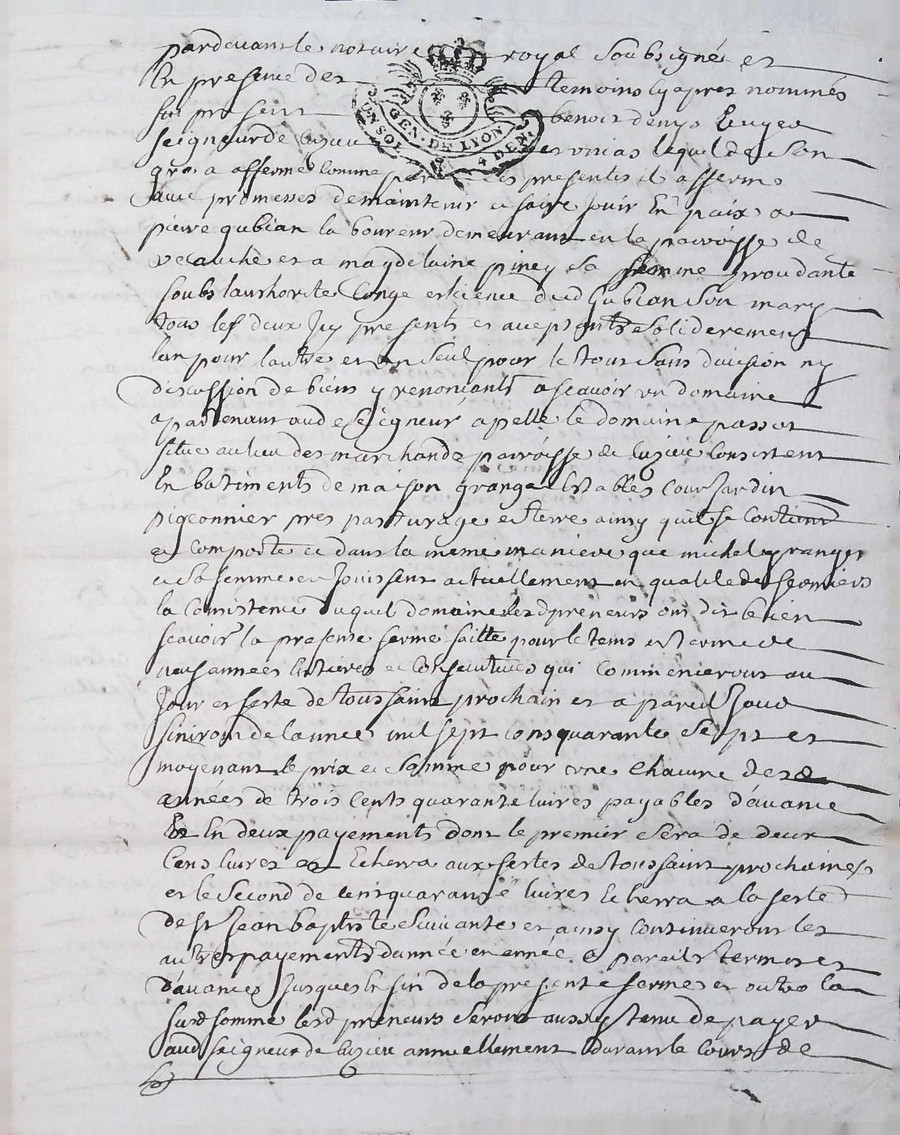 pardevant le notaire royal soubsigné et
En presence des temoins cy apres nommés
fut present benoit denys
seigneur de et vinias lequel de son
gré a affermé comme par ces presentes il afferme
avec promesses de maintenir et faire jouir En paix a
pierre gubian laboureur demeurant en la parroisse de
veauche et a magdelaine piney sa femme procudante
soubs lauthorité Congé et licence dud gubian son mary
tous les deux Icy presents et acceptants solideremens
lun pour lautre et un seul pour le tout sans division ny
discussion de biens y renonçants a scavoir un domaine
apartenant aud seigneur apellé le domaine passot
situé au lieu des marchands parroisse de Consistent
En batiments de maison grange Estables Cour Jardin
pigeonnier prés pasturage et terre ainsy quil se Contient
et Comporte et dans la meme maniere que michel granger
et sa femme en Jouissent actuellement en qualité de fermiers
la Consistence duquel domaine lesd preneurs ont dit bien
scavoir la presente ferme faitte pour le tems et terme de
neuf années Entieres et Consecutives qui Commenceront au
Jour et feste de toussaint prochain et a pareil Jour
finiront de lannée mil sept cens quarante sept et
moyenant le prix et somme pour une chacune desd
années de trois Cents quarante livres payables davance
En deux payements dont le premier sera de deux
Cens livres et Echerra aux festes de toussaint prochaines
et le second de Cent quarante livres Echerra a la feste
de st Jean baptiste suivante et ainsy Continueront les
autres payements dannée en année a pareils termes et
davances Jusques En fin de la presente fermes et outre la
susd somme lesd preneurs seront aussy tenu de payer
aud seigneur de annuellement durant le cours de
GEN. DE LYON
UN SOL 4 DEN.